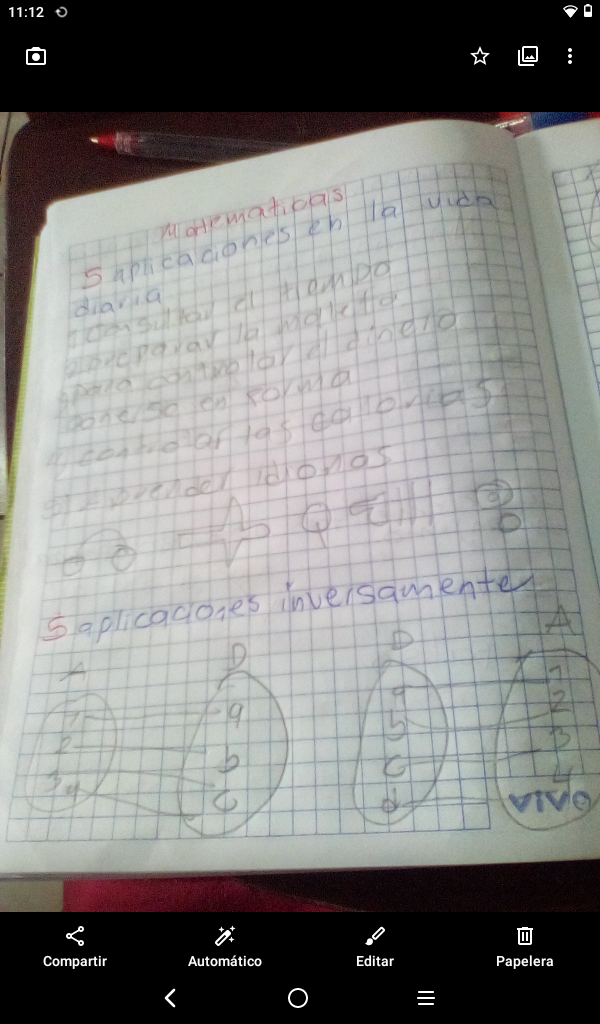 11:12
Matematicas
5 aplicaciones en la vida
diaria
1 consultar el tiempo
2 preparar la maleta
3 para controlar el dinero
ponerse en forma
4 controlar las calorias
5 Aprender idiomas
5 aplicaciones inversamente
A D D A
1 a a 1
2 b b 2
3 c c 3
4 d 4
VIVO
Compartir Automático Editar Papelera